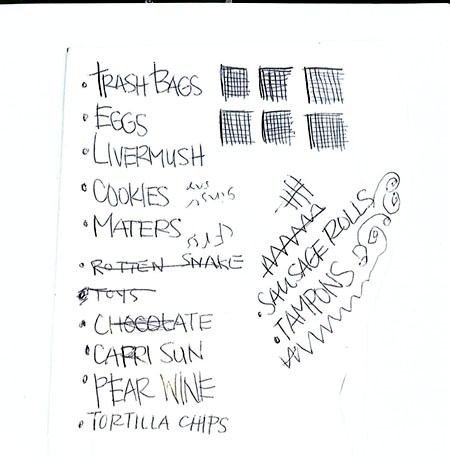 • TRASH BAGS
• EGGS
• LIVERMUSH
• COOKIES
• MATERS
• ROTTEN SNAKE
• TOYS
• CHOCOLATE
• CAPRI SUN
• PEAR WINE
• TORTILLA CHIPS
• SAUSAGE ROLLS
• TAMPONS